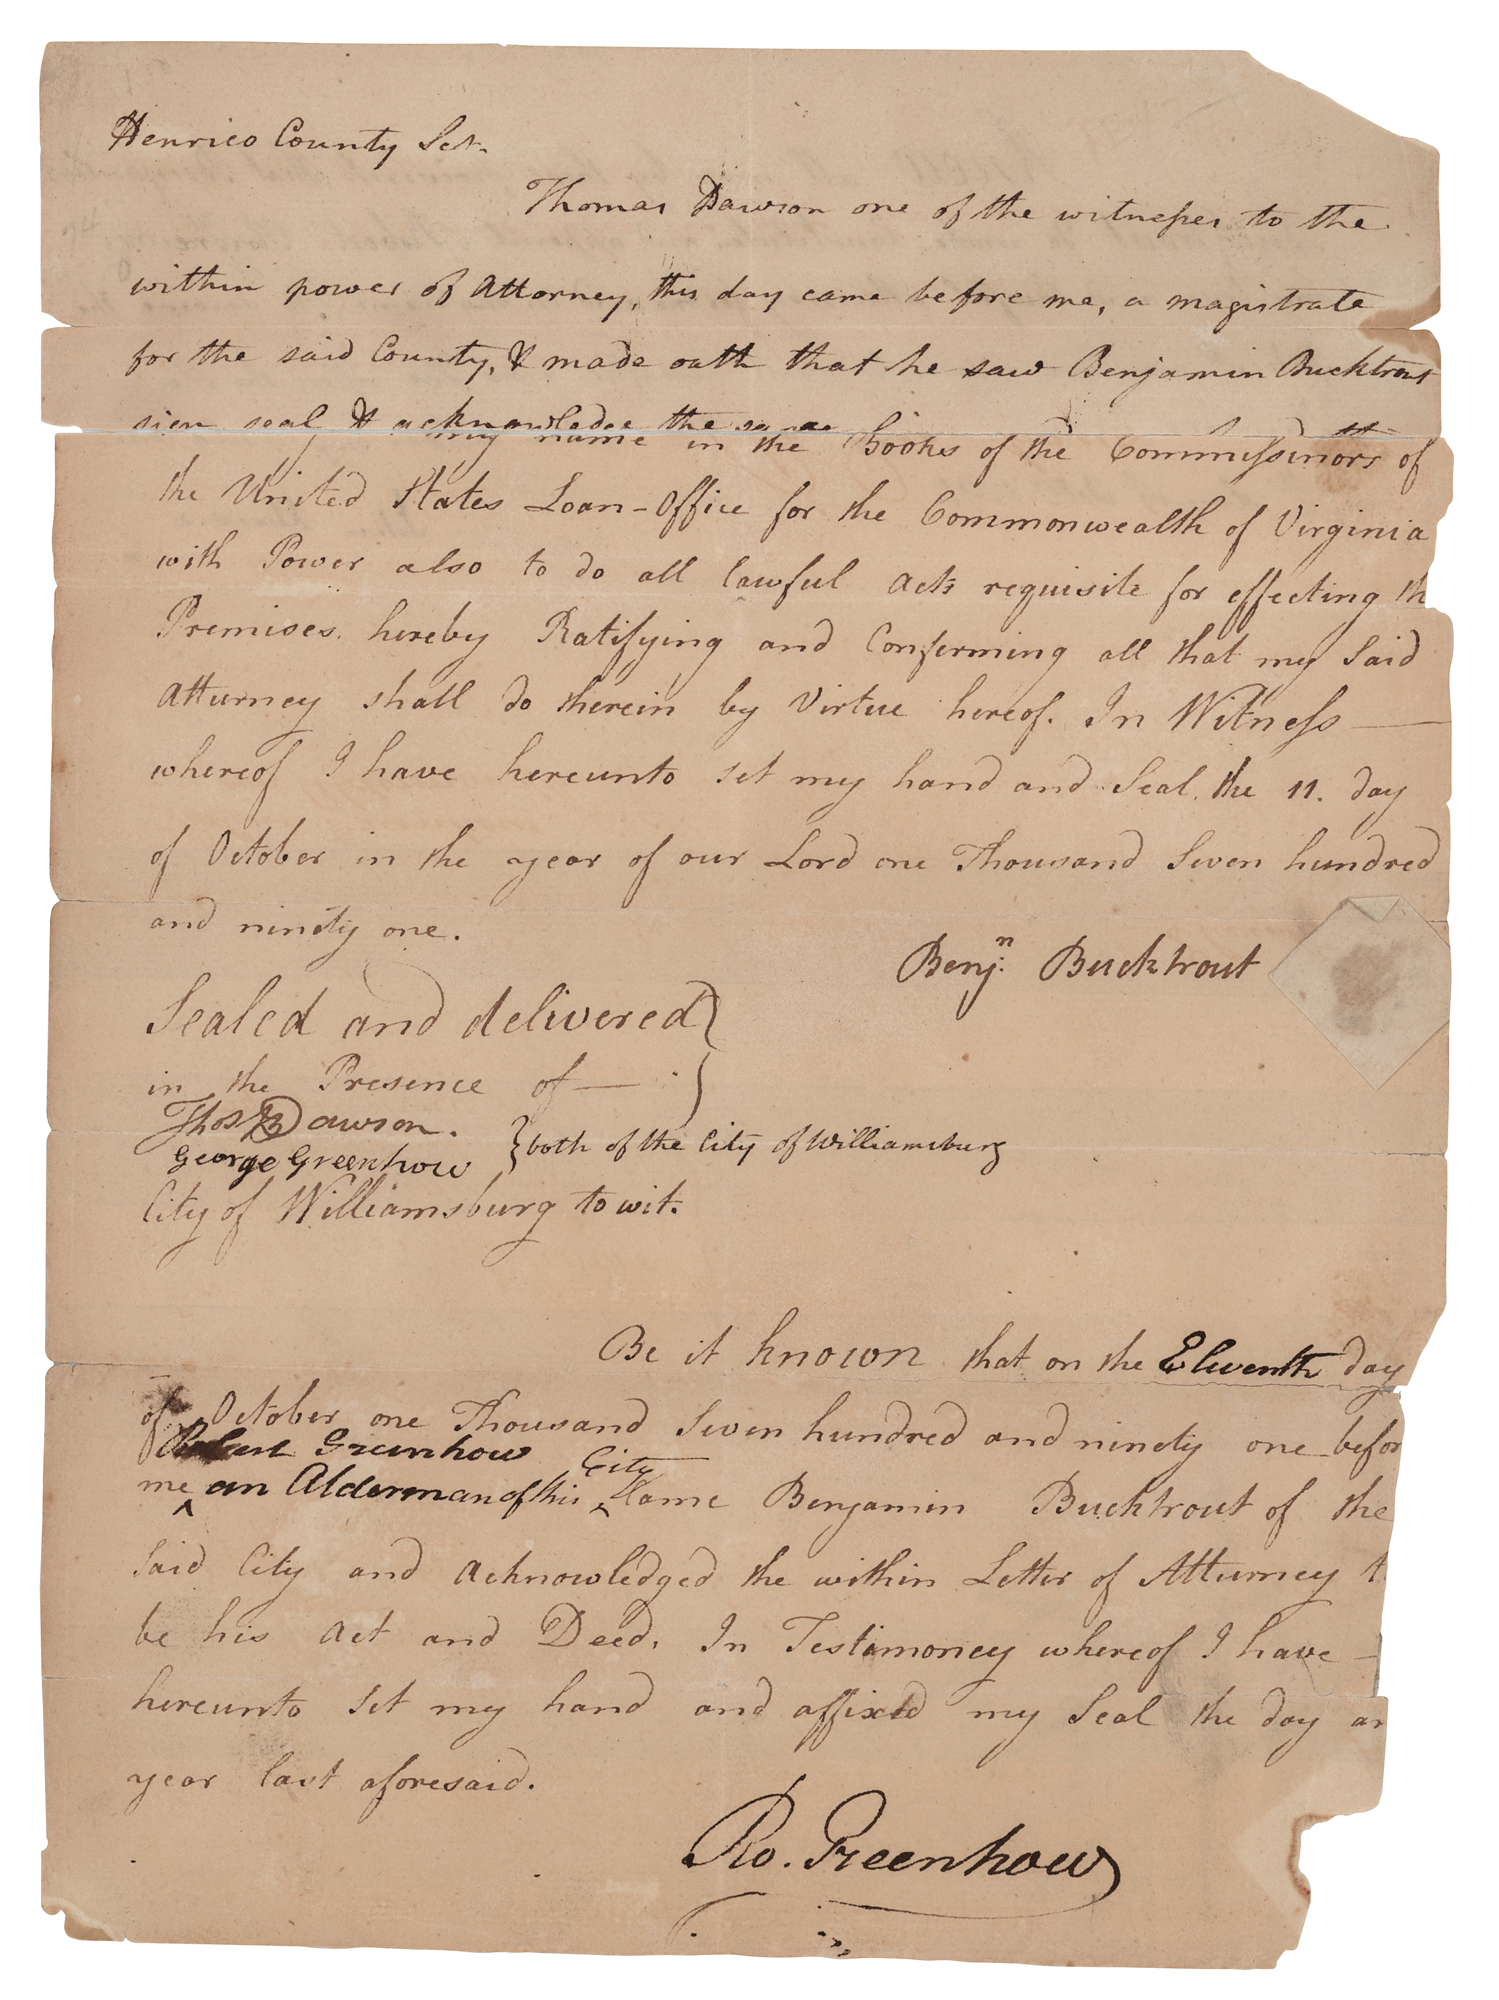 Henrico County Sct.
Thomas Dawson one of the witnesses to the
within power of Attorney, this day came before me, a magistrate
for the said County, & made oath that he saw Benjamin Bucktrout
sign seal & acknowledge the same
my name in the Books of the Commissinors of
the United States Loan-Office for the Commonwealth of Virginia
with Power also to do all lawful Acts requisite for effecting th
Premises. hereby Ratifying and Confirming all that my Said
Atturney shall do therein by Virtue hereof. In Witness
whereof I have hereunto set my hand and Seal. the 11. day
of October in the year of our Lord one Thousand Seven hundred
and ninety one.
Benjn. Bucktrout
Sealed and delivered
in the Presence of
Thos Dawson.
George Greenhow } both of the City of Williamsburg
City of Williamsburg to wit.
Be it known that on the Eleventh day
of October one Thousand Seven hundred and ninety one befor
Robert Greenhow City
me ^ an Alderman of this ^ Came Benjamin Bucktrout of the
Said City and Acknowledged the within Letter of Atturney t
be his Act and Deed. In Testimoney whereof I have
hereunto Set my hand and affixed my Seal the day an
year last aforesaid.
Ro. Greenhow